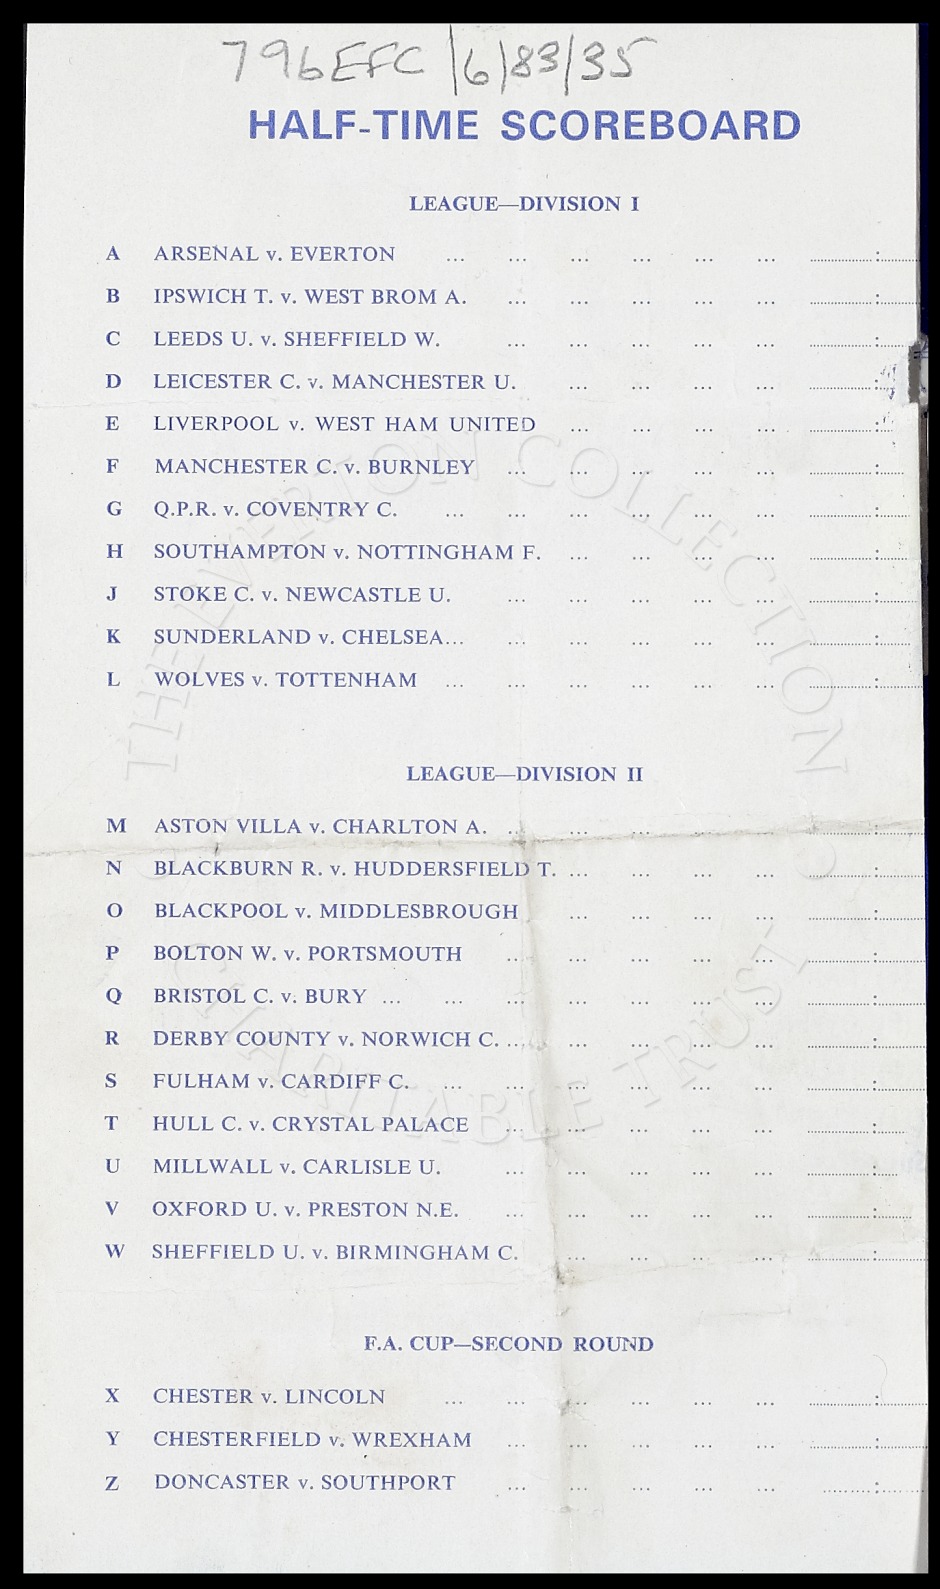 796EFC/6/83/35
HALF-TIME SCOREBOARD
LEAGUE—DIVISION I
A ARSENAL v. EVERTON ... ... ... ... ... ... ..................:.........
B IPSWICH T. v. WEST BROM A. ... ... ... ... ... ..................:.........
C LEEDS U. v. SHEFFIELD W. ... ... ... ... ... ..................:.........
D LEICESTER C. v. MANCHESTER U. ... ... ... ... ..................:.........
E LIVERPOOL v. WEST HAM UNITED ... ... ... ... ..................:.........
F MANCHESTER C. v. BURNLEY ... ... ... ... ... ..................:.........
G Q.P.R. v. COVENTRY C. ... ... ... ... ... ... ..................:.........
H SOUTHAMPTON v. NOTTINGHAM F. ... ... ... ... ..................:.........
J STOKE C. v. NEWCASTLE U. ... ... ... ... ... ..................:.........
K SUNDERLAND v. CHELSEA... ... ... ... ... ... ..................:.........
L WOLVES v. TOTTENHAM ... ... ... ... ... ... ..................:.........
LEAGUE—DIVISION II
M ASTON VILLA v. CHARLTON A. ... ... ... ... ... ..................:.........
N BLACKBURN R. v. HUDDERSFIELD T. ... ... ... ... ..................:.........
O BLACKPOOL v. MIDDLESBROUGH ... ... ... ... ..................:.........
P BOLTON W. v. PORTSMOUTH ... ... ... ... ... ..................:.........
Q BRISTOL C. v. BURY ... ... ... ... ... ... ... ..................:.........
R DERBY COUNTY v. NORWICH C. ... ... ... ... ... ..................:.........
S FULHAM v. CARDIFF C. ... ... ... ... ... ... ..................:.........
T HULL C. v. CRYSTAL PALACE ... ... ... ... ... ..................:.........
U MILLWALL v. CARLISLE U. ... ... ... ... ... ..................:.........
V OXFORD U. v. PRESTON N.E. ... ... ... ... ... ..................:.........
W SHEFFIELD U. v. BIRMINGHAM C. ... ... ... ... ..................:.........
F.A. CUP—SECOND ROUND
X CHESTER v. LINCOLN ... ... ... ... ... ... ..................:.........
Y CHESTERFIELD v. WREXHAM ... ... ... ... ... ..................:.........
Z DONCASTER v. SOUTHPORT ... ... ... ... ... ..................:.........
THE EVERTON COLLECTION
CHARITABLE TRUST